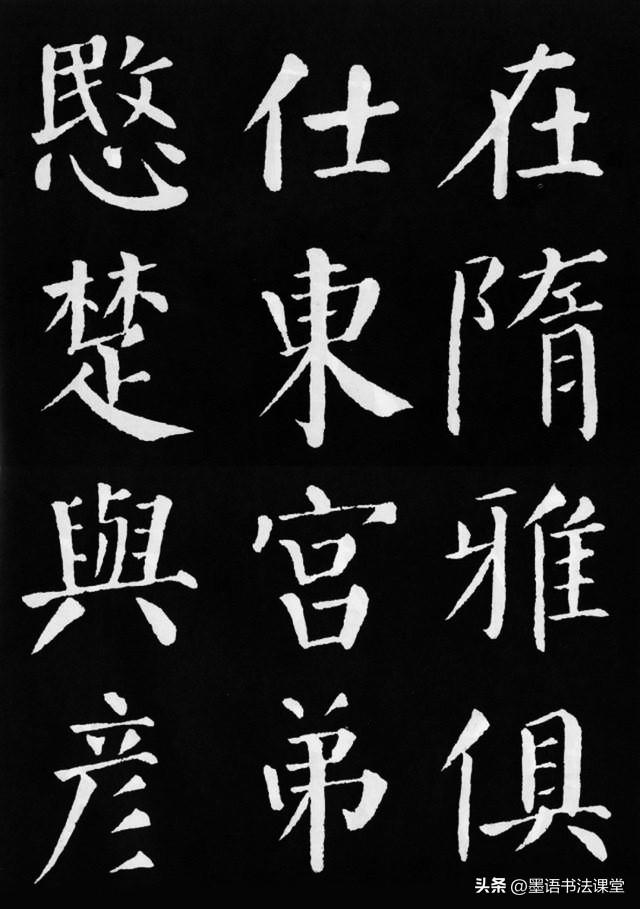 在隋雅俱
仕東宮弟
愍楚與彥
头条 @墨语书法课堂